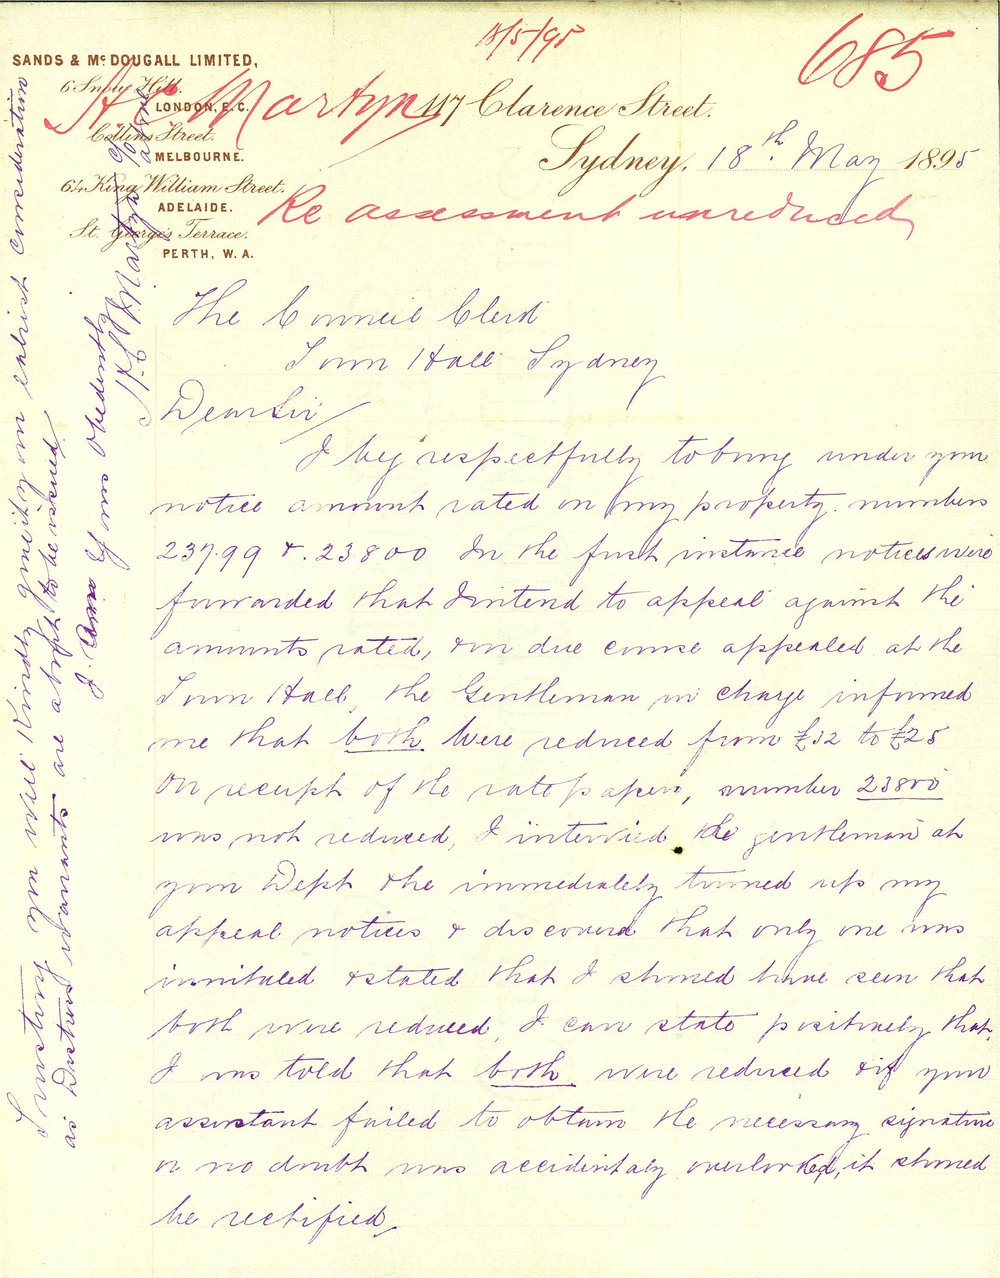 18/5/95
685
SANDS & McDOUGALL LIMITED,
6 Snow Hill.
LONDON, E.C.
Collins Street.
MELBOURNE.
64 King William Street.
ADELAIDE.
St. George's Terrace.
PERTH, W. A.
H C Martyn
117 Clarence Street.
Sydney, 18th May 1895
Re assessment unreduced
The Council Clerk
Town Hall Sydney
Dear Sir
I beg respectfully to bring under your
notice amount rated on my property. numbers
23799 & 23800 In the first instance notices were
forwarded that I intend to appeal against the
amounts rated, & in due course appealed at the
Town Hall, the Gentleman in charge informed
me that both were reduced from £32 to £25
On receipt of the rate papers, number 23800
was not reduced, I intervied the gentleman at
your Dept & he immediately turned up my
appeal notices & discoverd that only one was
innitialed & stated that I should have seen that
both were reduced, I can state positively that
I was told that both were reduced & if your
assistant failed to obtain the necessary signature
or no doubt was accidentaly overlooked, it should
be rectified,
Trusting you will kindly give it your earliest consideration
as Distress warrants are abrpt to be issued
I am Yours Obediently
H. C. Martyn
above